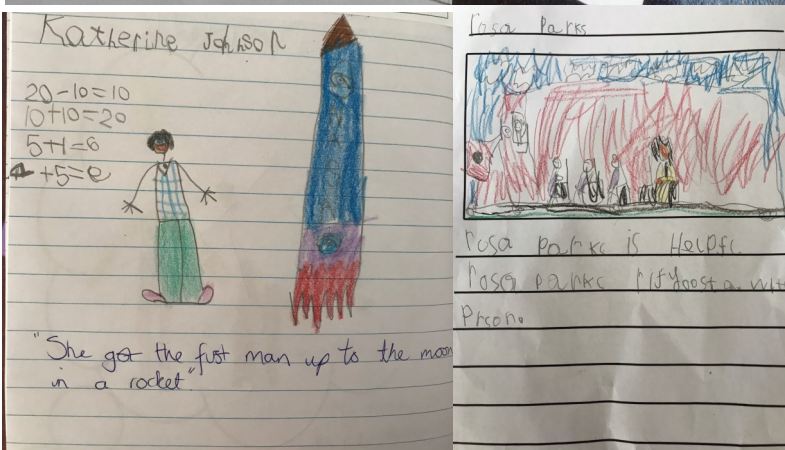 Katherine Johnson
20-10=10
10+10=20
5+1=6
+5=
"She got the fust man up to the moon
in a rocket"
rosa Parks
rosa parks is Helpfl
rosa parks